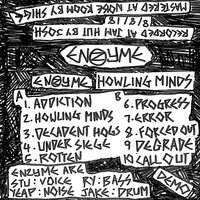 RECORDED AT JAM HUT BY SOSH
MASTERED AT NOISE ROOM BY SHIGE
ENZYME
ENZYME HOWLING MINDS
A
1. ADDICTION
2. HOWLING MINDS
3. DECADENT HOGS
4. UNDER SIEGE
5. ROTTEN
B
6. PROGRESS
7. ERROR
8. FORCED OUT
9 DEGRADE
10 CALL OUT
ENZYME ARE
STU: VOICE RY: BASS
YEAP: NOISE JAKE: DRUM
DEMO